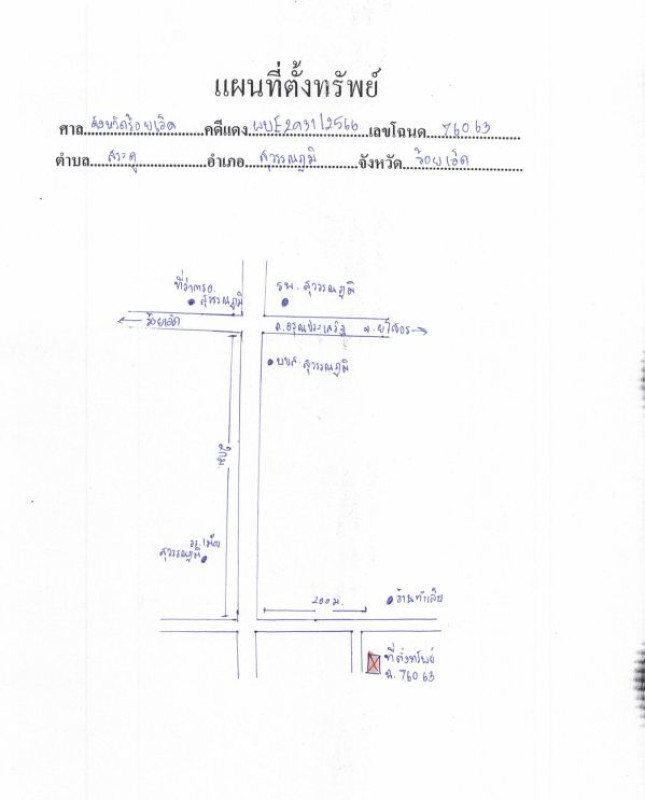 แผนที่ตั้งทรัพย์
ศาล จังหวัดร้อยเอ็ด คดีแดง ผบE2931/2566 เลขโฉนด 76063
ตำบล สระคู อำเภอ สุวรรณภูมิ จังหวัด ร้อยเอ็ด
ที่ว่าการอ.
สุวรรณภูมิ
รพ. สุวรรณภูมิ
ร้อยเอ็ด
ถ.อรุณประเสริฐ
จ.ยโสธร
บขส. สุวรรณภูมิ
สุวรรณภูมิ
200 ม.
ที่ตั้งทรัพย์
ฉ. 76063